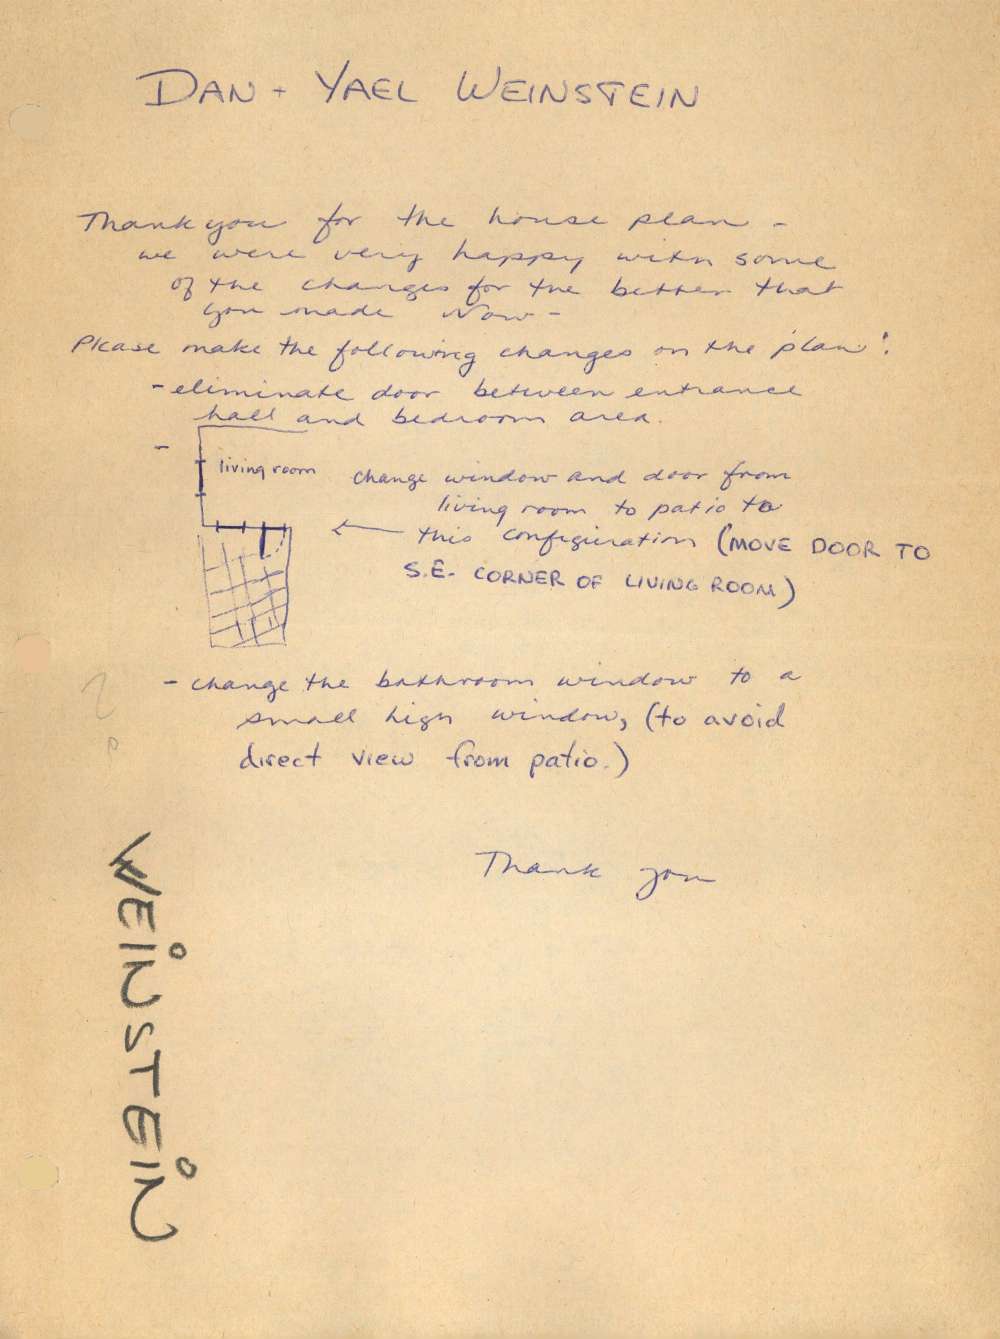 DAN + YAEL WEINSTEIN
Thank you for the house plan -
we were very happy with some
of the changes for the better that
you made Now -
Please make the following changes on the plan:
- eliminate door between entrance
hall and bedroom area.
-
living room
change window and door from
living room to patio to
this configuration (MOVE DOOR TO
S.E. CORNER OF LIVING ROOM)
- change the bathroom window to a
small high window, (to avoid
direct view from patio.)
Thank you
WEINSTEIN